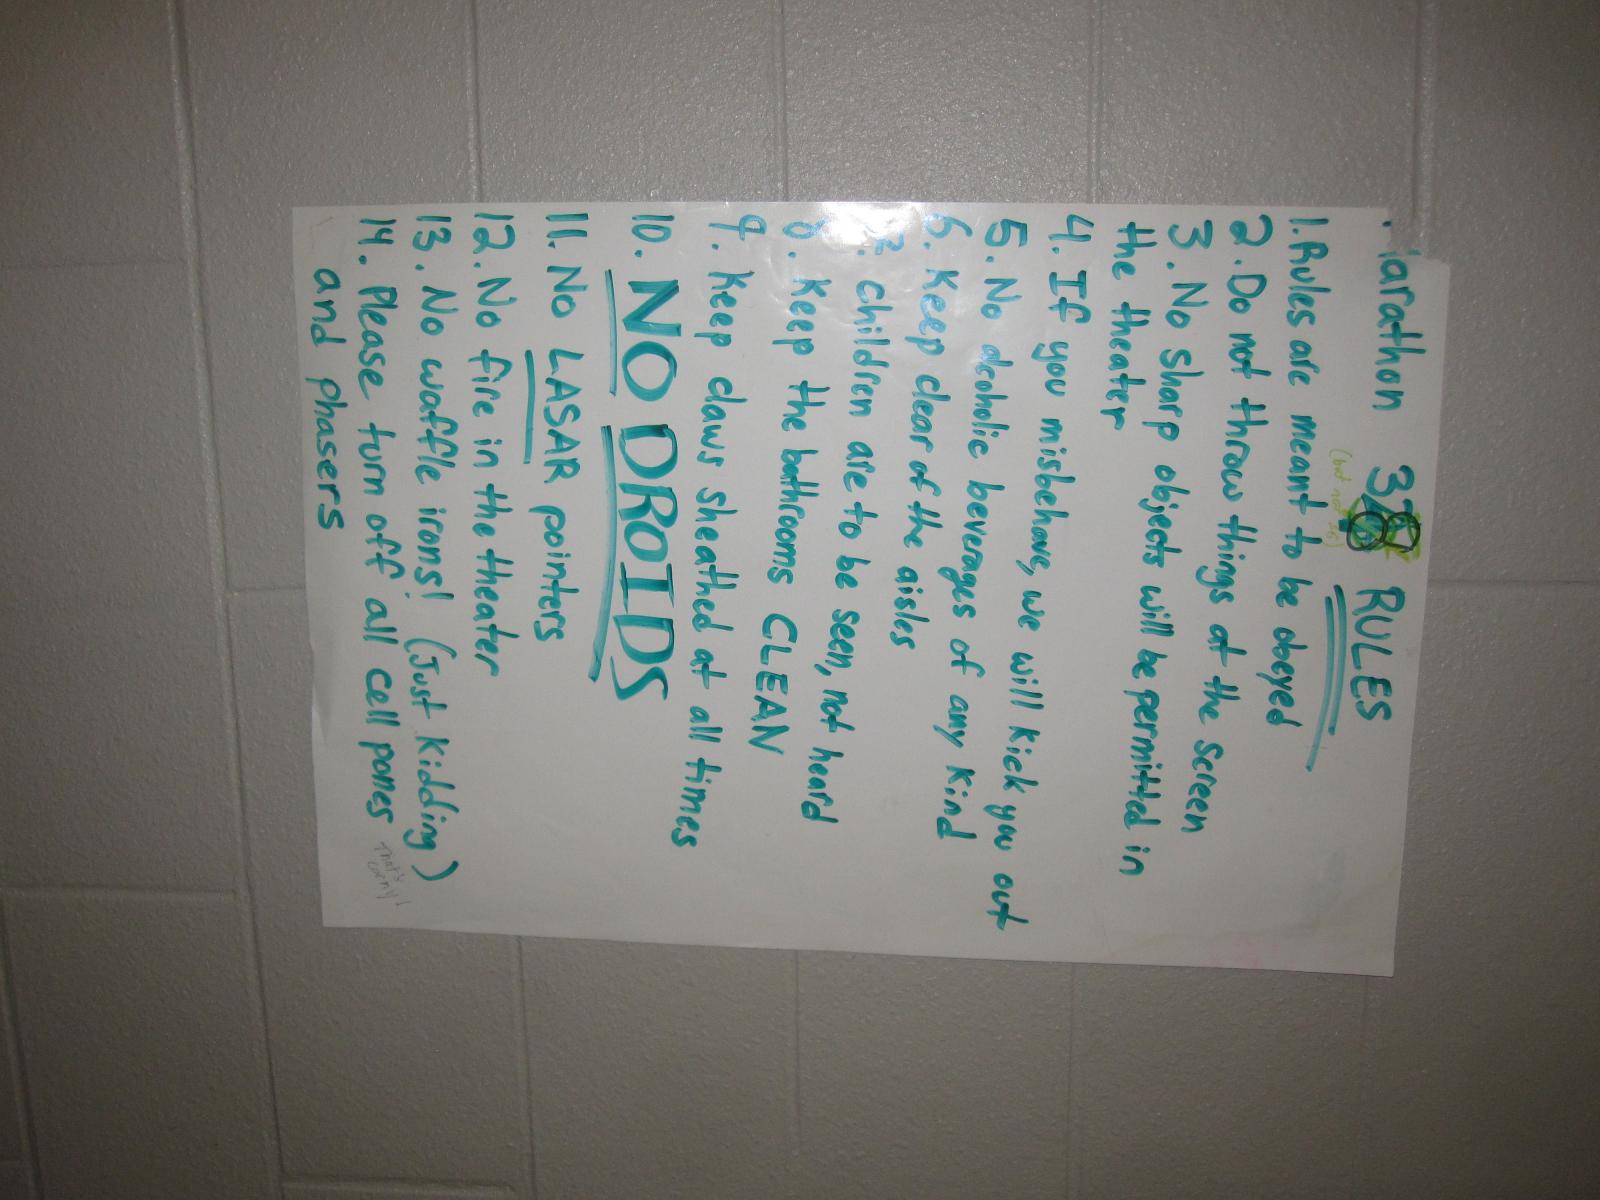 arathon 38 RULES
(but not 36)
1. Rules are meant to be obeyed
2. Do not throw things at the screen
3. No sharp objects will be permitted in
the theater
4. If you misbehave, we will kick you out
5. No alcoholic beverages of any kind
6. Keep clear of the aisles
7. Children are to be seen, not heard
8. Keep the bathrooms CLEAN
9. Keep claws sheathed at all times
10. NO DROIDS
11. No LASAR pointers
12. No fire in the theater
13. No waffle irons! (Just kidding)
14. Please turn off all cell pones
and phasers
That's
corny!